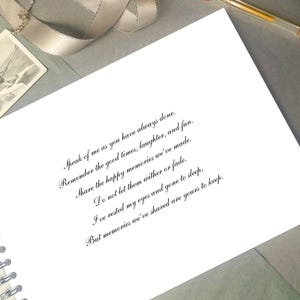 Speak of me as you have always done.
Remember the good times, laughter, and fun.
Share the happy memories we've made.
Do not let them wither or fade.
I've rested my eyes and gone to sleep,
But memories we've shared are yours to keep.